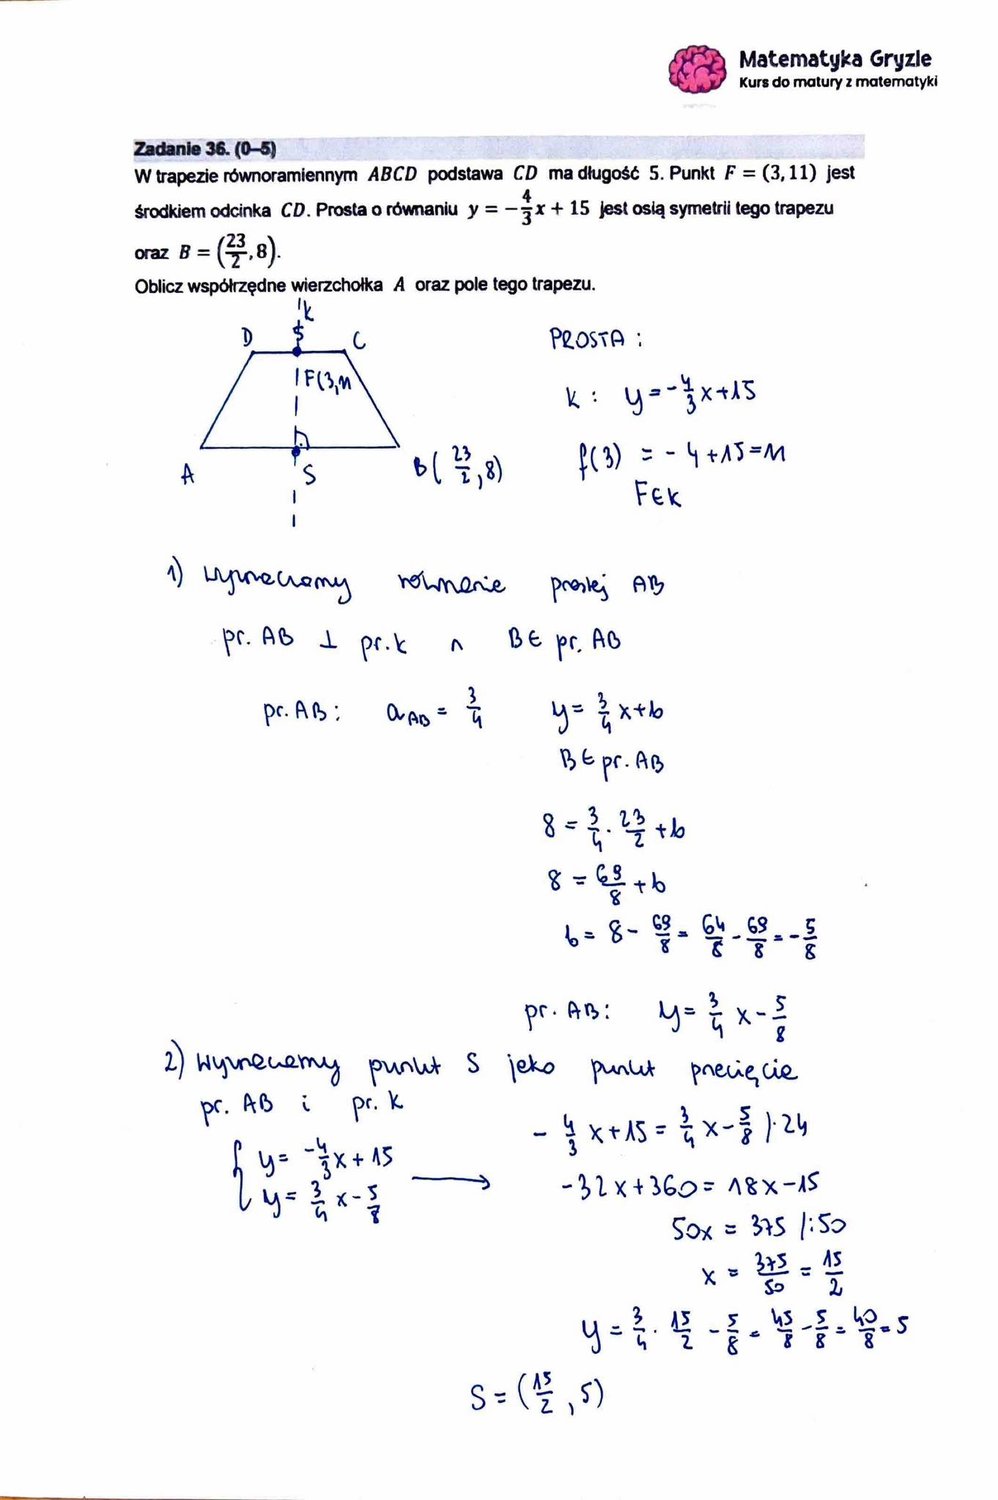 Matematyka Gryzie
Kurs do matury z matematyki
Zadanie 36. (0–5)
W trapezie równoramiennym ABCD podstawa CD ma długość 5. Punkt F = (3, 11) jest
środkiem odcinka CD. Prosta o równaniu y = −4/3x + 15 jest osią symetrii tego trapezu
oraz B = (23/2, 8).
Oblicz współrzędne wierzchołka A oraz pole tego trapezu.
k
D C
F(3,11
A S B(23/2, 8)
PROSTA :
k : y = -4/3x+15
f(3) = -4+15=11
F∈k
1) wyznaczamy równanie prostej AB
pr. AB ⊥ pr. k ∧ B∈ pr. AB
pr. AB: a_AB = 3/4 y = 3/4 x+b
B∈ pr. AB
8 = 3/4 · 23/2 + b
8 = 69/8 + b
b = 8 - 69/8 = 64/8 - 69/8 = -5/8
pr. AB: y = 3/4 x - 5/8
2) wyznaczamy punkt S jako punkt przecięcia
pr. AB i pr. k
{ y = -4/3x + 15
y = 3/4 x - 5/8
- 4/3 x + 15 = 3/4 x - 5/8 /·24
-32x + 360 = 18x - 15
50x = 375 /:50
x = 375/50 = 15/2
y = 3/4 · 15/2 - 5/8 = 45/8 - 5/8 = 40/8 = 5
S = (15/2, 5)